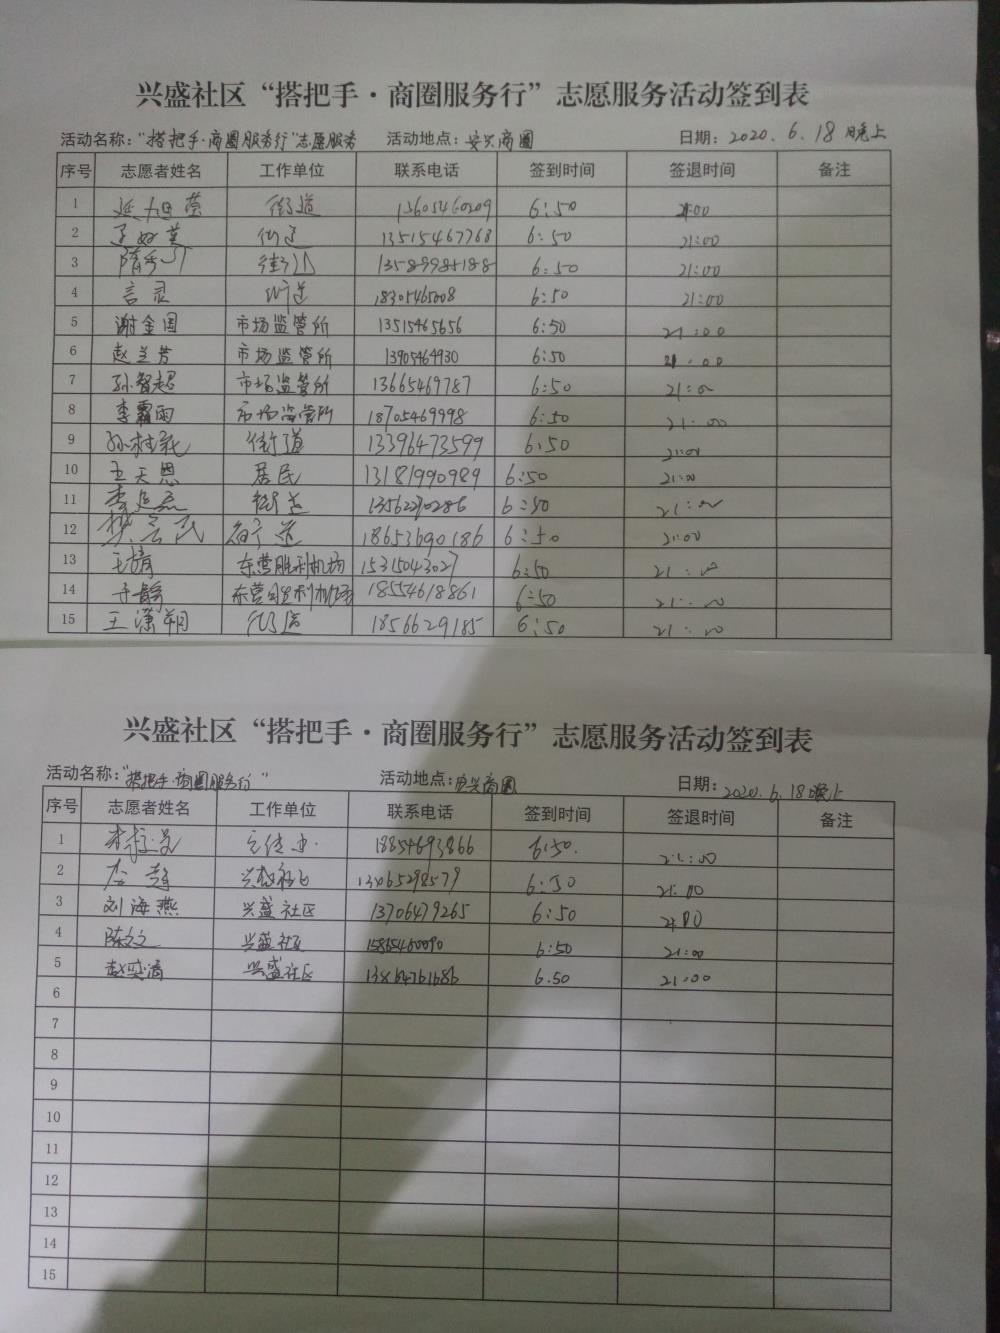 兴盛社区“搭把手·商圈服务行”志愿服务活动签到表
活动名称：“搭把手·商圈服务行”志愿服务 活动地点：安兴商圈 日期：2020.6.18晚上
序号 志愿者姓名 工作单位 联系电话 签到时间 签退时间 备注
1 街道 13605460209 6:50 21:00
2 街道 13515467768 6:50 21:00
3 街道 13589985188 6:50 21:00
4 言灵 街道 18305465008 6:50 21:00
5 谢金国 市场监管所 13515465656 6:50 21:00
6 赵兰芳 市场监管所 13905464930 6:50 21:00
7 孙智超 市场监管所 13665469787 6:50 21:00
8 李霸雨 市场监管所 18705469998 6:50 21:00
9 街道 13396473599 6:50 21:00
10 王天恩 居民 13181990989 6:50 21:00
11 街道 6:50 21:00
12 街道 18653690186 6:50 21:00
13 王婧 东营胜利机场 15315043027 6:50 21:00
14 于静 东营胜利机场 18554618861 6:50 21:00
15 王潇翔 街道 1856629185 6:50 21:00
兴盛社区“搭把手·商圈服务行”志愿服务活动签到表
活动名称：“搭把手·商圈服务行” 活动地点：安兴商圈 日期：2020.6.18晚上
序号 志愿者姓名 工作单位 联系电话 签到时间 签退时间 备注
1 18854693866 6:50. 21:00
2 兴盛社区 13065298579 6:50 21:00
3 刘海燕 兴盛社区 13706479265 6:50 21:00
4 陈文文 兴盛社区 15865460090 6:50 21:00
5 赵奕清 兴盛社区 13864761686 6.50 21:00
6
7
8
9
10
11
12
13
14
15